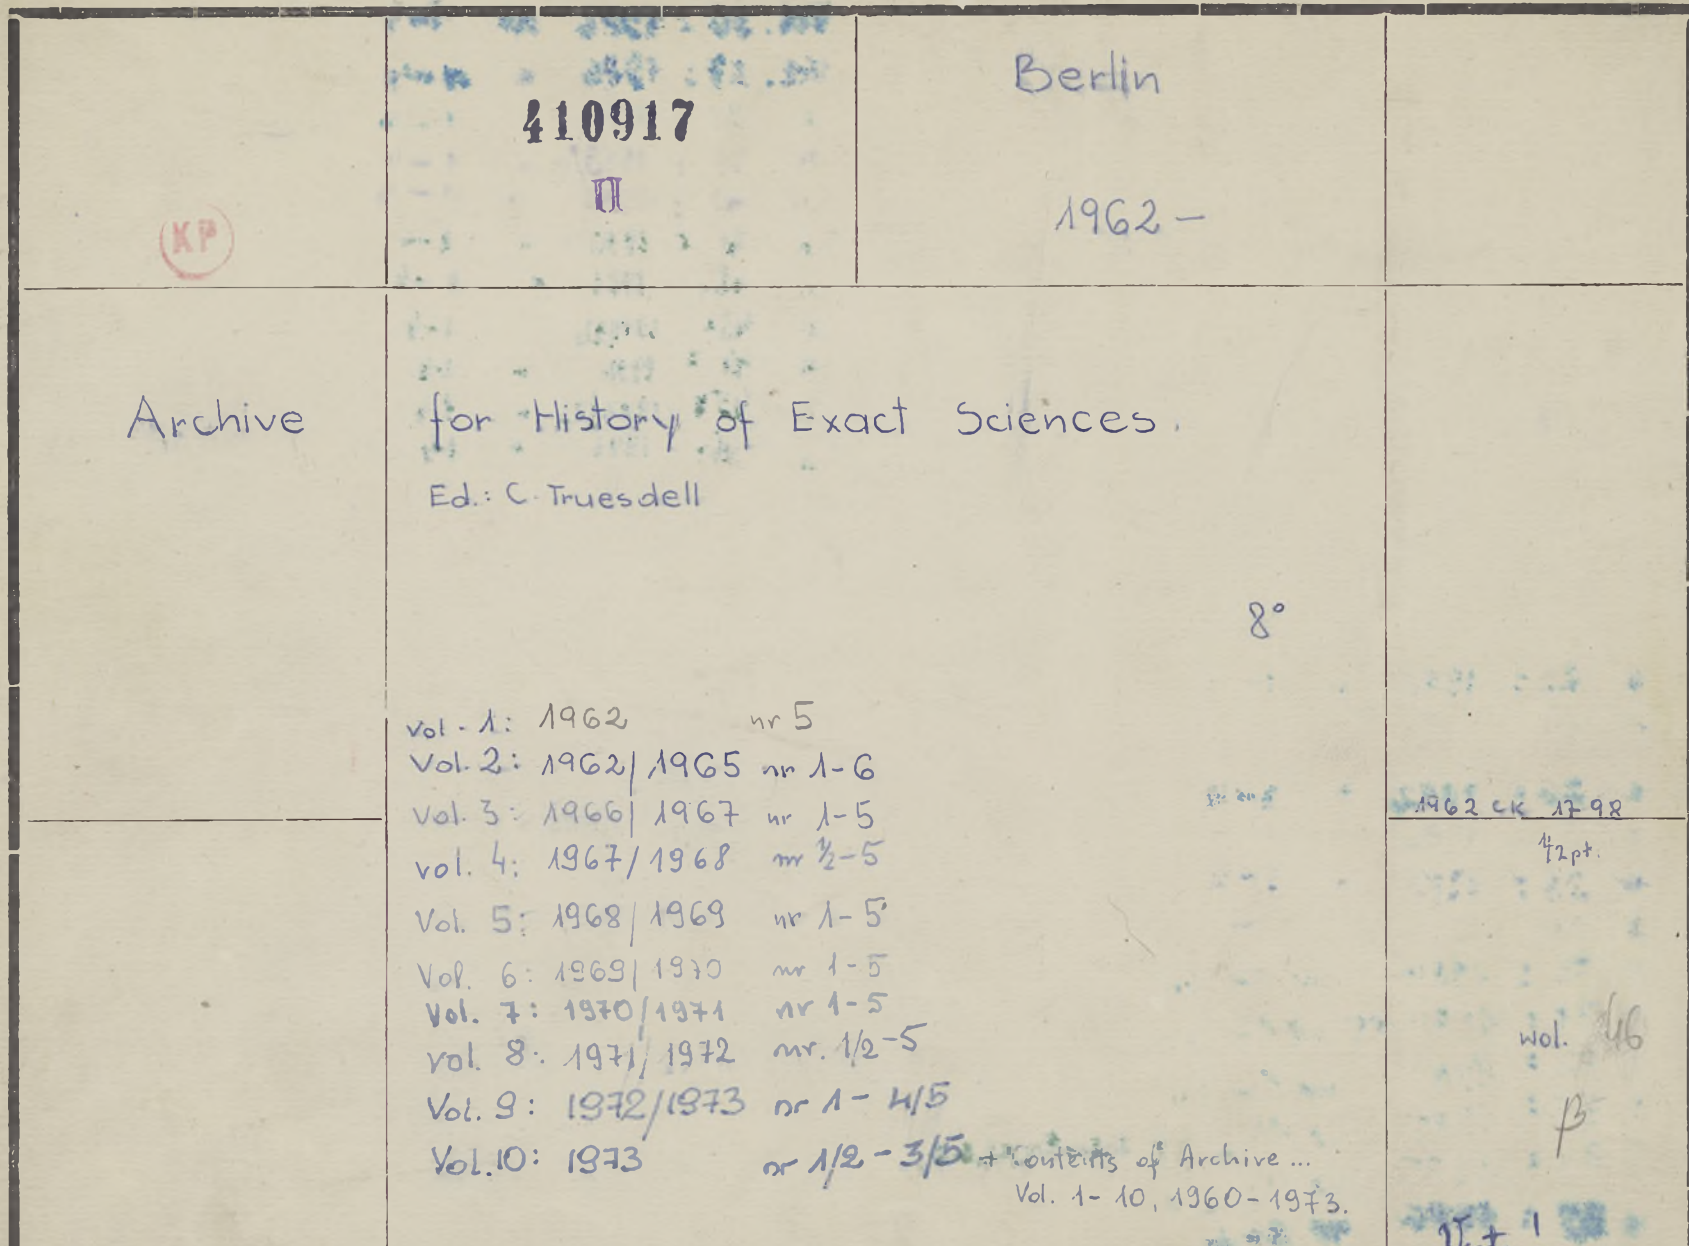 410917
II
KP
Berlin
1962 —
Archive for History of Exact Sciences.
Ed.: C. Truesdell
8°
vol. 1: 1962 nr 5
Vol. 2: 1962/1965 nr 1-6
Vol. 3: 1966/1967 nr 1-5
vol. 4: 1967/1968 nr 1/2-5
Vol. 5: 1968/1969 nr 1-5
Vol. 6: 1969/1970 nr 1-5
Vol. 7: 1970/1971 nr 1-5
vol. 8: 1971/1972 nr. 1/2-5
Vol. 9: 1972/1973 nr 1-4/5
Vol. 10: 1973 nr 1/2-3/5 + Contents of Archive...
Vol. 1-10, 1960-1973.
1962 CK 1798
1/2 pt.
wol. 46
β